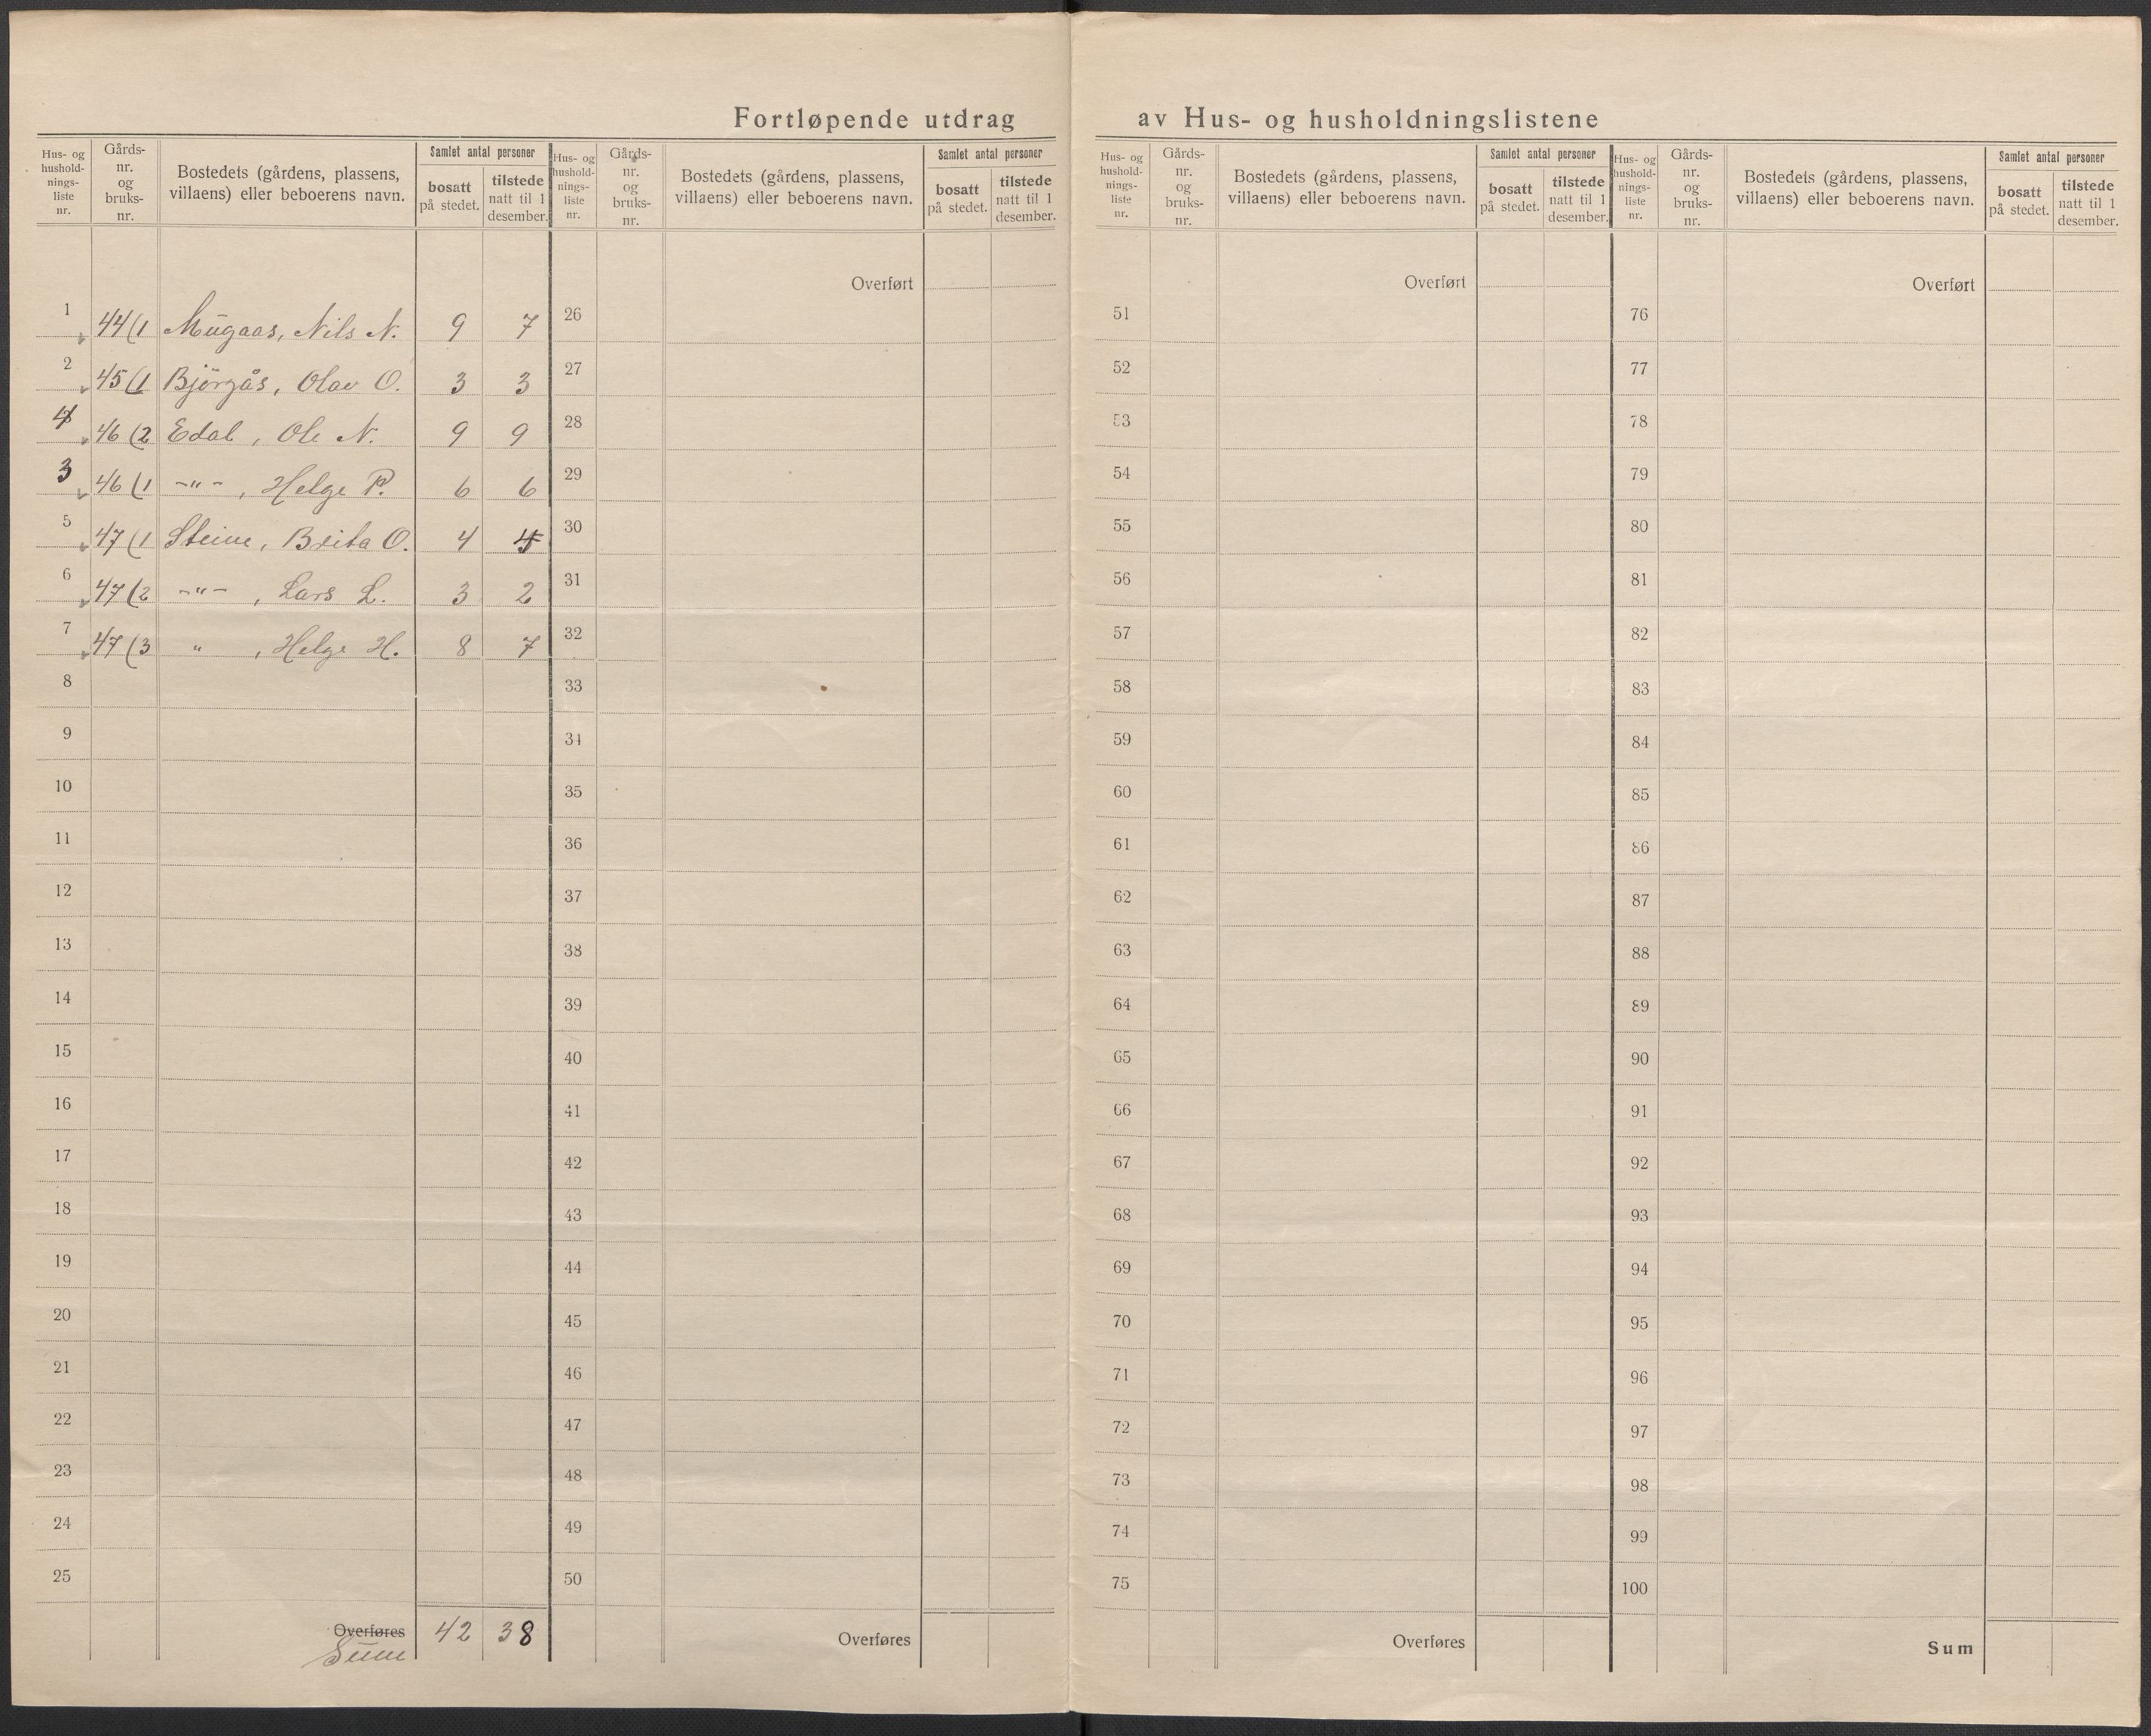 Fortløpende utdrag av Hus- og husholdningslistene
Hus- og hushold- nings- liste nr. Gårds- nr. og bruks- nr. Bostedets (gårdens, plassens, villaens) eller beboerens navn. Samlet antal personer bosatt på stedet. tilstede natt til 1 desember.
1 44(1 Mūgaas, Nils N. 9 7
2 45(1 Björgås, Olav O. 3 3
4 46(2 Edal, Ole N. 9 9
3 46(1 -"-, Helge P. 6 6
5 47(1 Steine, Brita O. 4 4
6 47(2 -"-, Lars L. 3 2
7 47(3 ", Helge H. 8 7
8
9
10
11
12
13
14
15
16
17
18
19
20
21
22
23
24
25
Overføres 42 38
Sum
Hus- og hushold- nings- liste nr. Gårds- nr. og bruks- nr. Bostedets (gårdens, plassens, villaens) eller beboerens navn. Samlet antal personer bosatt på stedet. tilstede natt til 1 desember.
Overført
26
27
28
29
30
31
32
33
34
35
36
37
38
39
40
41
42
43
44
45
46
47
48
49
50
Overføres
Hus- og hushold- nings- liste nr. Gårds- nr. og bruks- nr. Bostedets (gårdens, plassens, villaens) eller beboerens navn. Samlet antal personer bosatt på stedet. tilstede natt til 1 desember.
Overført
51
52
53
54
55
56
57
58
59
60
61
62
63
64
65
66
67
68
69
70
71
72
73
74
75
Overføres
Hus- og hushold- nings- liste nr. Gårds- nr. og bruks- nr. Bostedets (gårdens, plassens, villaens) eller beboerens navn. Samlet antal personer bosatt på stedet. tilstede natt til 1 desember.
Overført
76
77
78
79
80
81
82
83
84
85
86
87
88
89
90
91
92
93
94
95
96
97
98
99
100
Sum